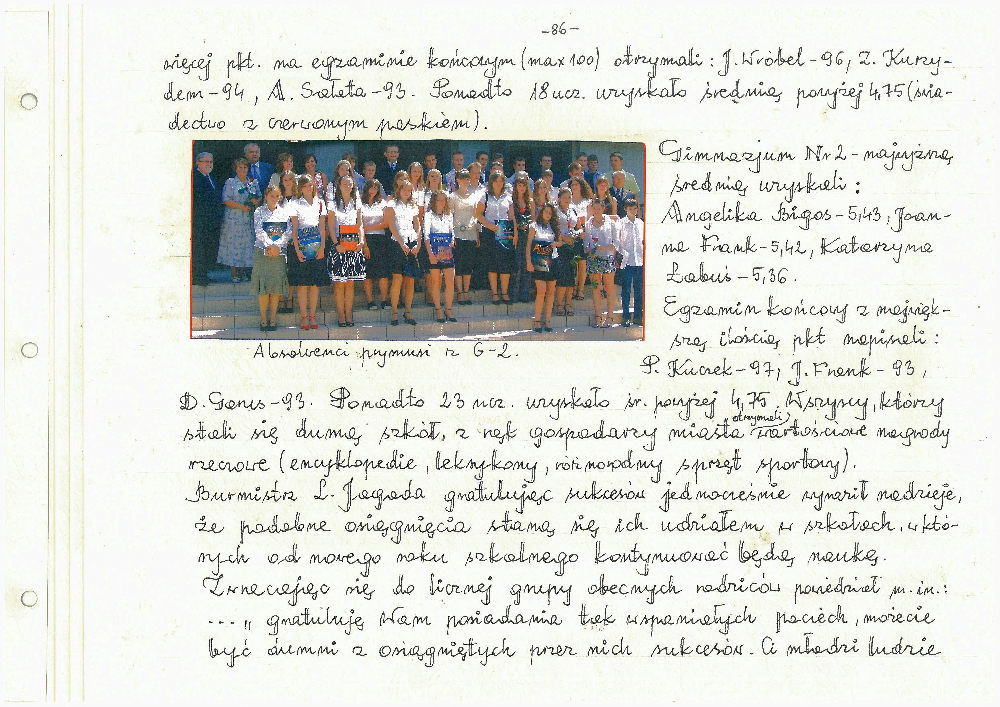 -86-
więcej pkt. na egzaminie końcowym (max 100) otrzymali: J. Wróbel-96, Z. Kurzy-
dem-94, A. Sałata-93. Ponadto 18 ucz. uzyskało średnią powyżej 4,75 (świa-
dectwo z czerwonym paskiem).
Gimnazjum Nr 2 - najwyższą
średnią uzyskali:
Angelika Bigos-5,43, Joan-
na Frank-5,42, Katarzyna
Łabuś-5,36.
Egzamin końcowy z najwięk-
szą ilością pkt napisali:
Absolwenci prymusi z G-2.
P. Kuczek-97, J. Frank-93,
D. Gonus-93. Ponadto 23 ucz. uzyskało śr. powyżej 4,75. Wszyscy, którzy
stali się dumą szkół, z rąk gospodarzy miasta otrzymali wartościowe nagrody
rzeczowe (encyklopedie, leksykony, różnorodny sprzęt sportowy).
Burmistrz L. Jagoda gratulując sukcesów jednocześnie wyraził nadzieję,
że podobne osiągnięcia staną się ich udziałem w szkołach, w któ-
rych od nowego roku szkolnego kontynuować będą naukę.
Zwracając się do licznej grupy obecnych rodziców powiedział m.in.:
... „ gratuluję Wam posiadania tak wspaniałych pociech, możecie
być dumni z osiągniętych przez nich sukcesów. Ci młodzi ludzie